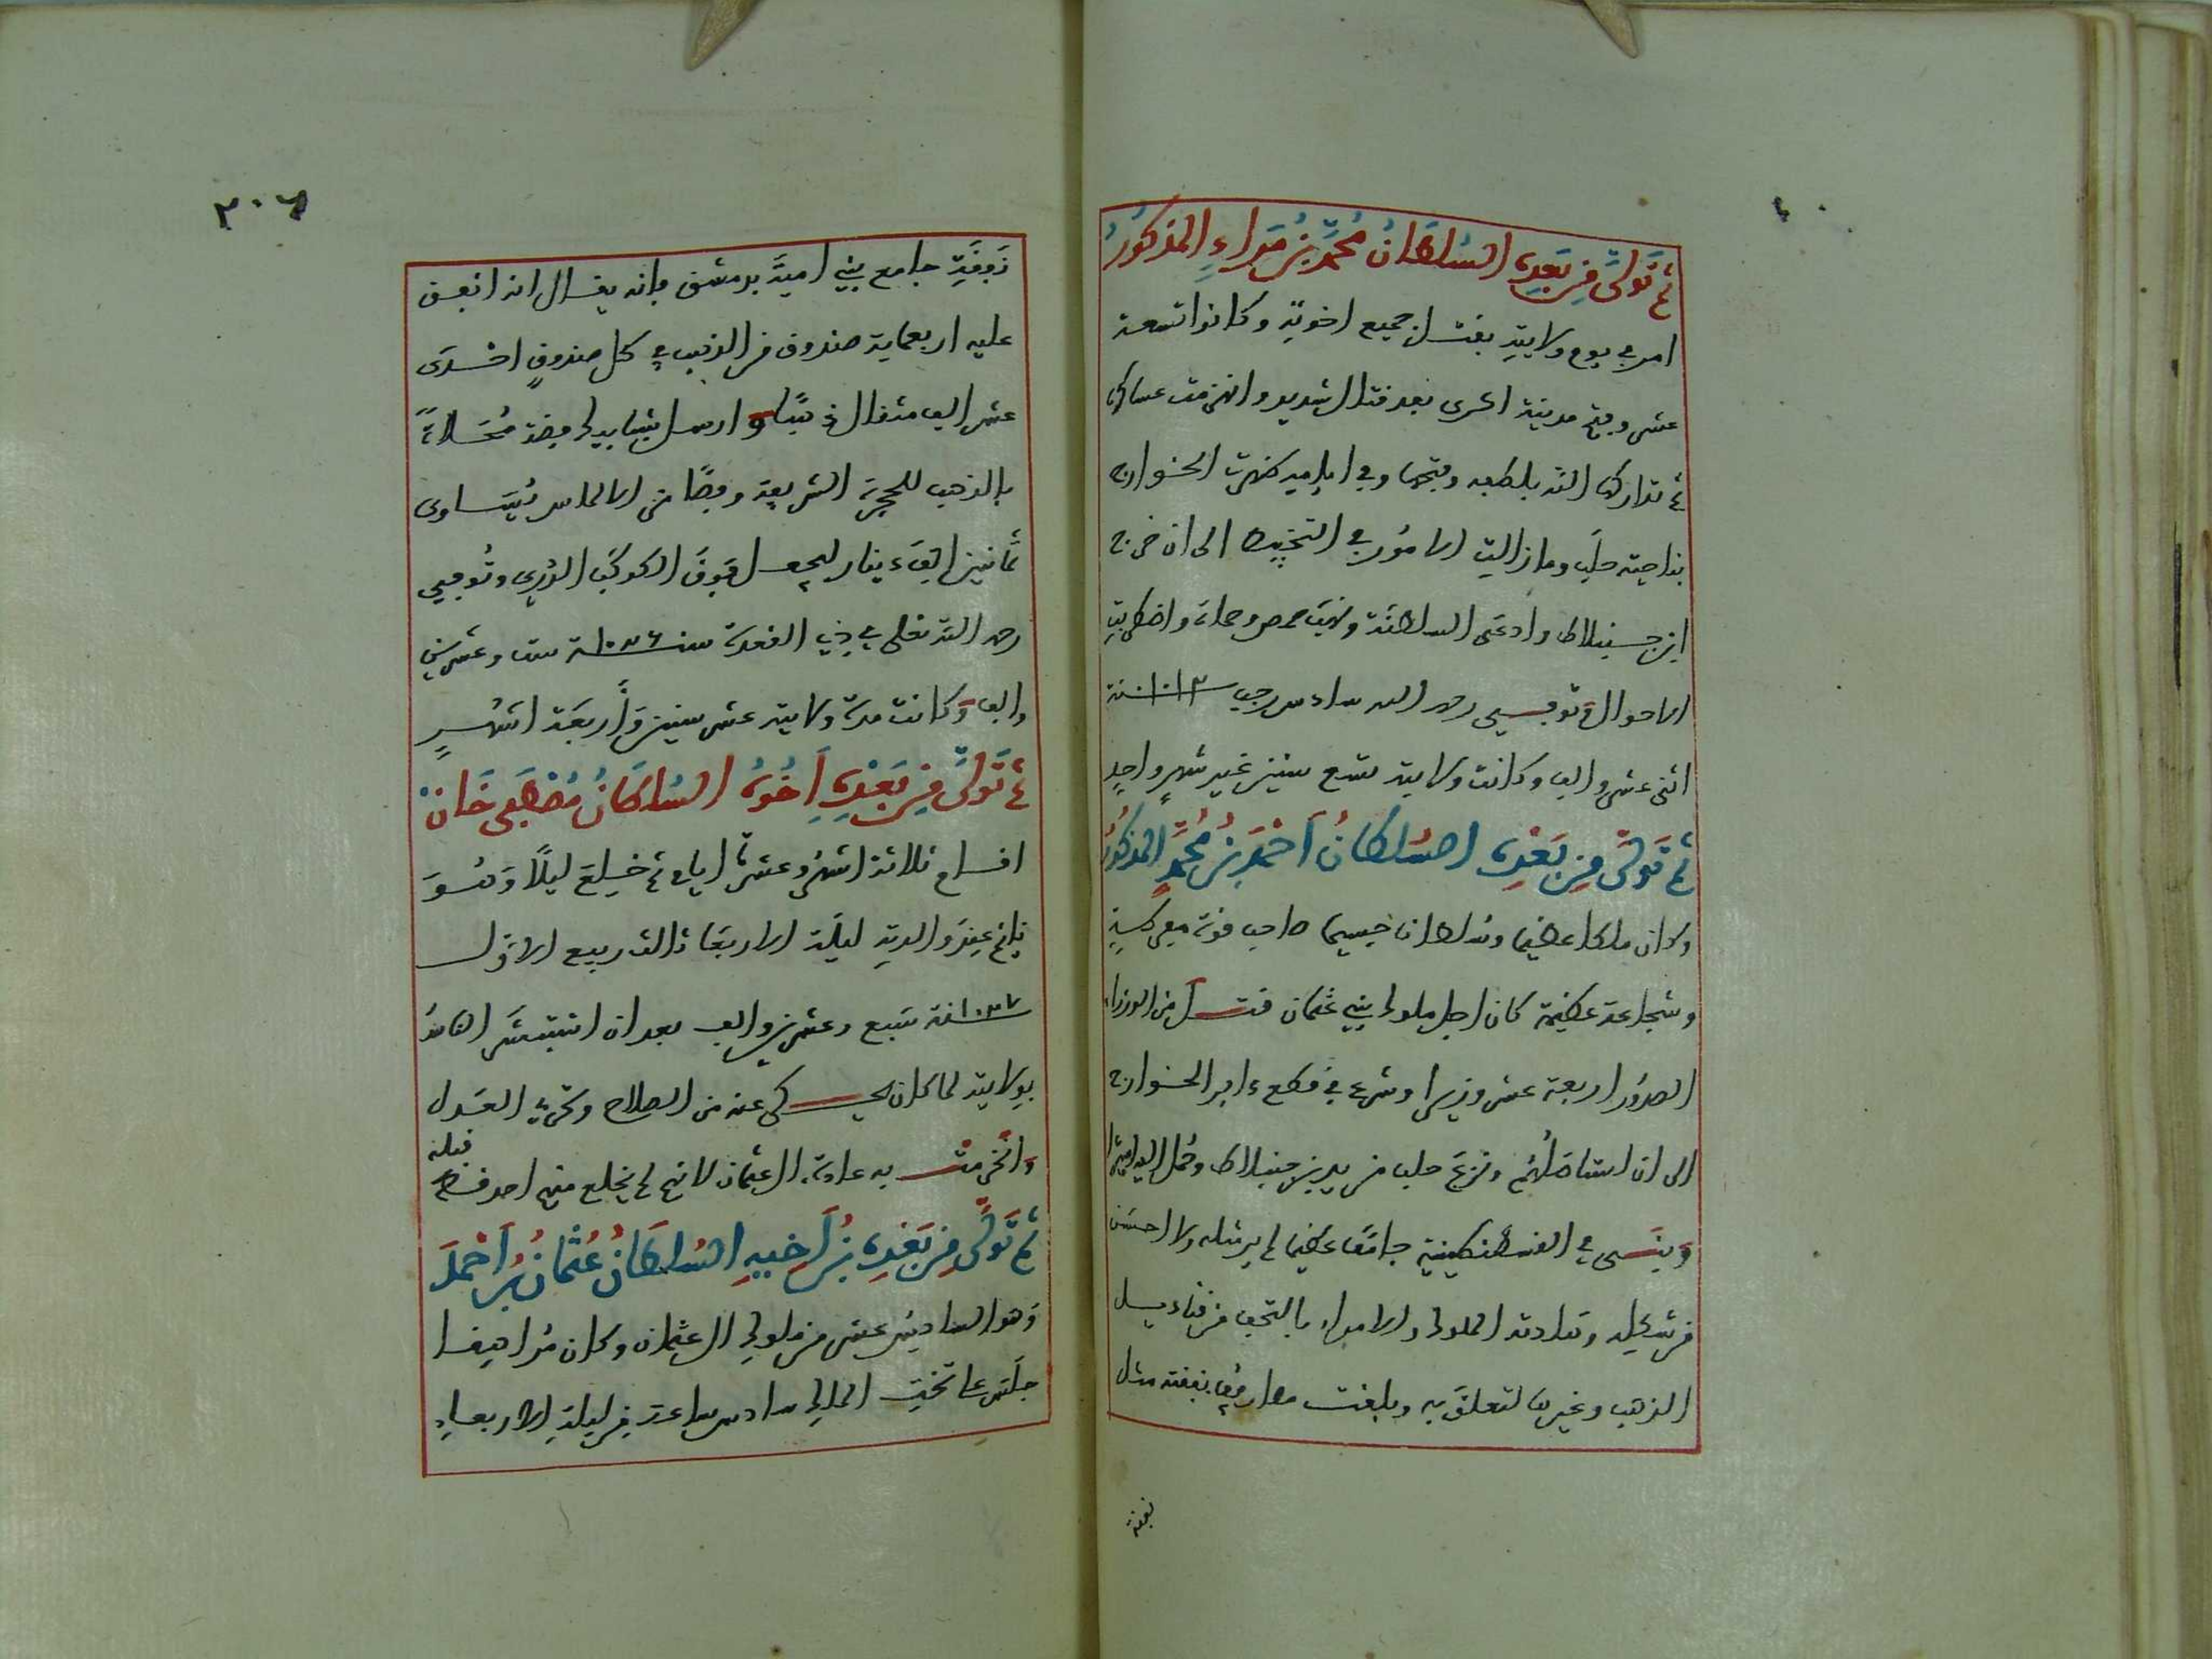 ثم تولى من بعده السلطان محمد بن مراد المذكور
امر في يوم ولايته بقتل جميع اخوته وكانوا تسعة
عشر وفتح مدينة اكرى بعد قتال شديد وانهزمت عساكره
ثم تداركه الله بلطفه وفتحها وفي ايامه ظهرت الخوارج
بناحية حلب ومازالت الامور في التخبيط الى ان خرج
ابن جنبلاط وادعى السلطنة ونهب حمص وحماة واضطربت
الاحوال وتوفي رحمه الله سادس رجب سنة ١٠١٢
اثنى عشر والف وكانت ولايته تسع سنين غير شهر واحد
ثم تولى من بعده السلطان احمد بن محمد المذكور
وكان ملكا عظيما وسلطان جسيما صاحب قوة
وشجاعة عظيمة كان اجل ملوك بني عثمان قتل من الوزراء
الصدور اربعة عشر وزيرا وشرع في قطع دابر الخوارج
الى ان استاصلهم ونزع حلب من يد بن جنبلاط وحمل اليه
وبنى في القسطنطينية جامعا عظيما لم ير مثله ولا احسن
من شكله وهادته الملوك والامراء بالتحف من قناديل
الذهب وغيرها لتعلق به وبلغت مصاريفه نفقته مثل
نفقة
٢٠٦
نفقة جامع بني امية بدمشق فإنه يقال انه انفق
عليه اربعماية صندوق من الذهب في كل صندوق احدى
عشر الف مثقال ذهبا وارسل شبابيك فضة محلاة
بالذهب للحجرة الشريفة وفصا من الالماس يساوى
ثمانين الف دينار ليجعل فوق الكوكب الدري وتوفي
رحمه الله تعلى في ذي القعدة سنة ١٠٢٦ ست وعشرين
والف وكانت مدة ولايته عشر سنين واربعة اشهر
ثم تولى من بعده اخوه السلطان مصطفى خان
اقام ثلاثة اشهر وعشرة ايام ثم خلع ليلا وهو
نايم عند والدته ليلة الاربعا ثالث ربيع الاول
سنة ١٠٢٧ سبع وعشرين والف بعد ان استبشر الناس
بولايته لما كان يحكى عنه من الصلاح وتحري العدل
وانخرمت به عادة ال عثمان لانهم لم يخلع منهم احد قط قبله
ثم تولى من بعده بن اخيه السلطان عثمان بن احمد
وهو السادس عشر من ملوك ال عثمان وكان مراهقا
جلس على تخت الملك سادس ساعة من ليلة الاربعاء